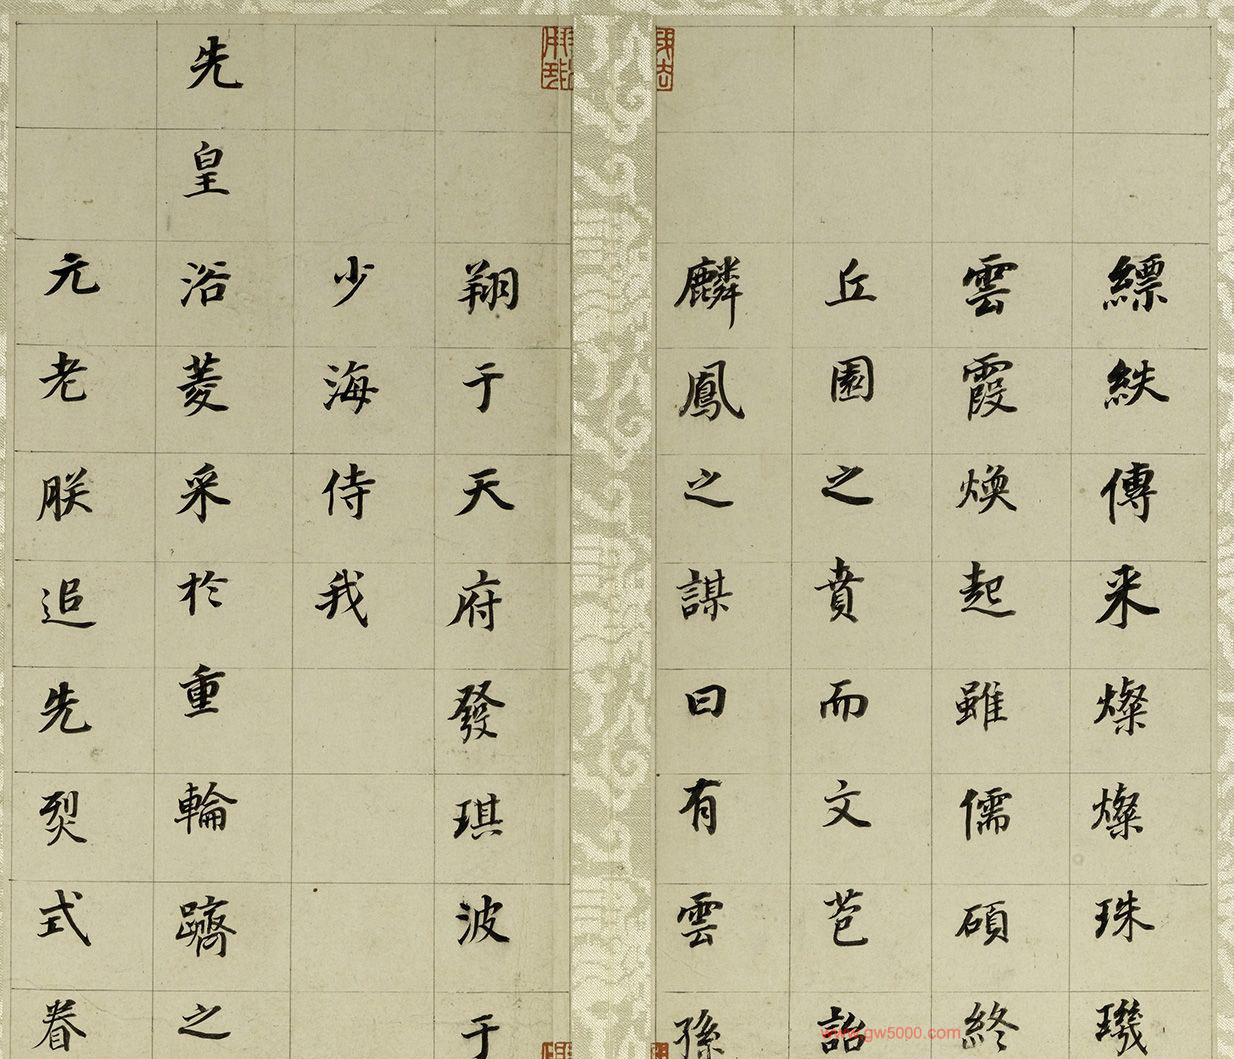 縹紩傳来燦燦珠璣
雲霞煥起雖儒碩終
丘園之賁而文苞詒
麟鳳之謀曰有雲孫
翔于天府發琪波于
少海侍我
先皇浴菱采於重輪躋之
元老朕追先烈式眷
www.gw5000.com